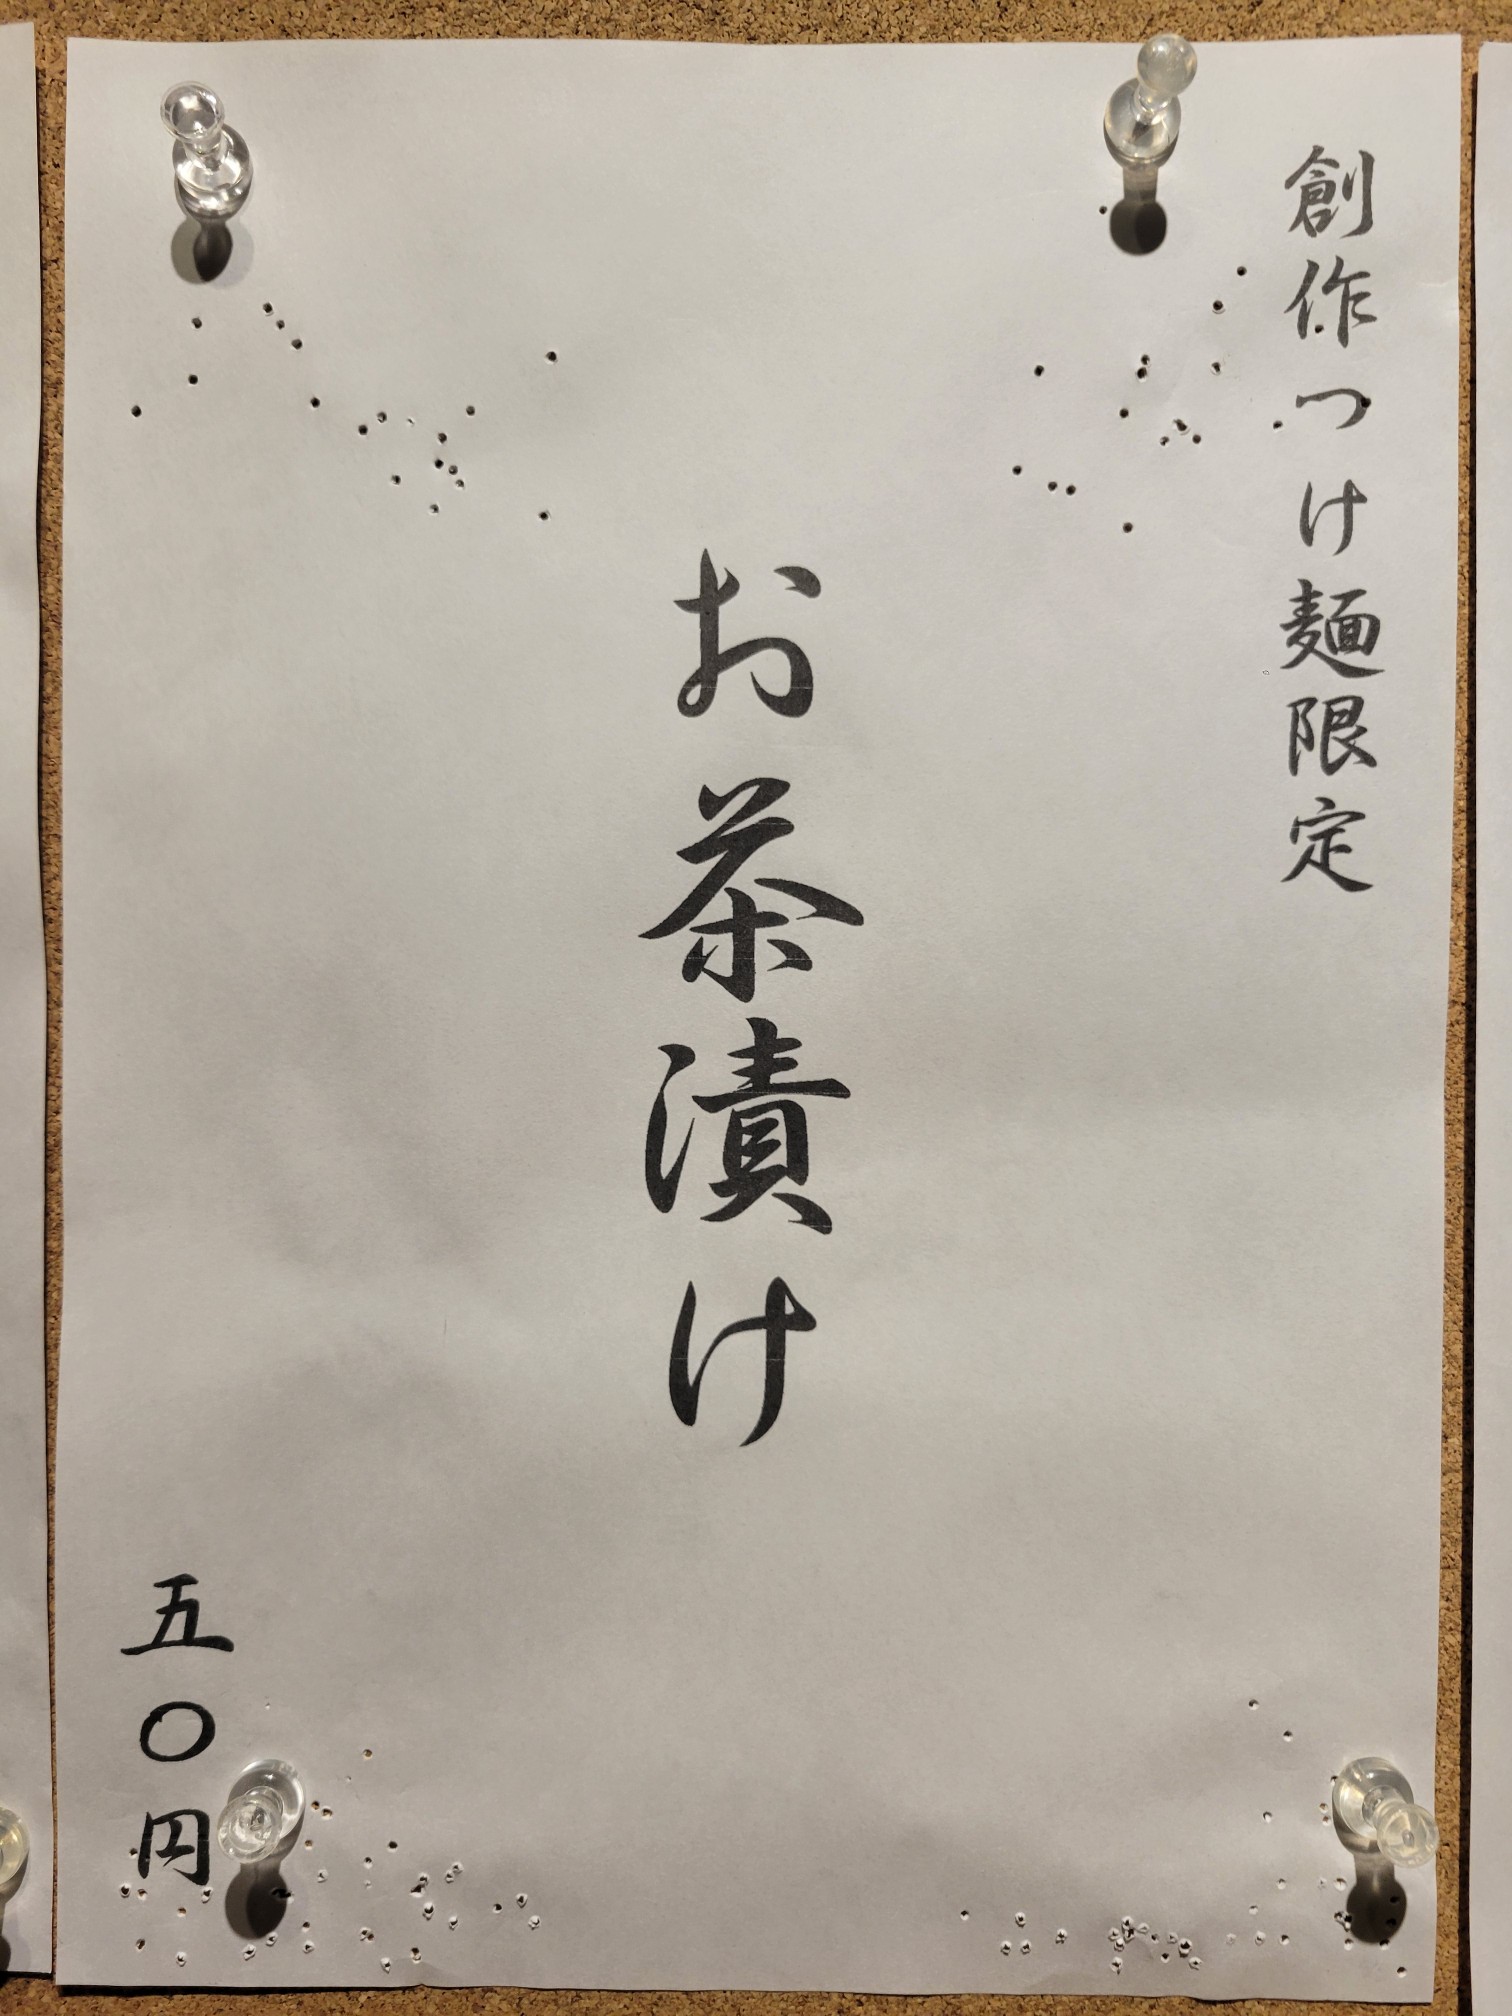 創作つけ麺限定
お茶漬け
五〇円